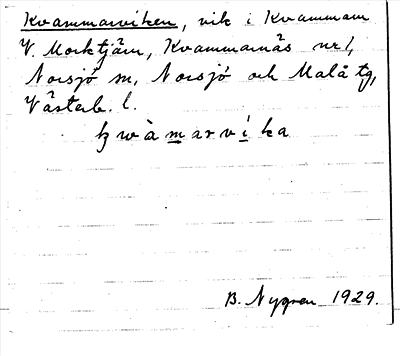 Kvammarviken, vik i Kvammarn
V. Morktjärn, Kvammarnäs nr 1,
Norsjö sn, Norsjö och Malå tg,
Västerb. l.
kwàmarvika
B. Nygren 1929.